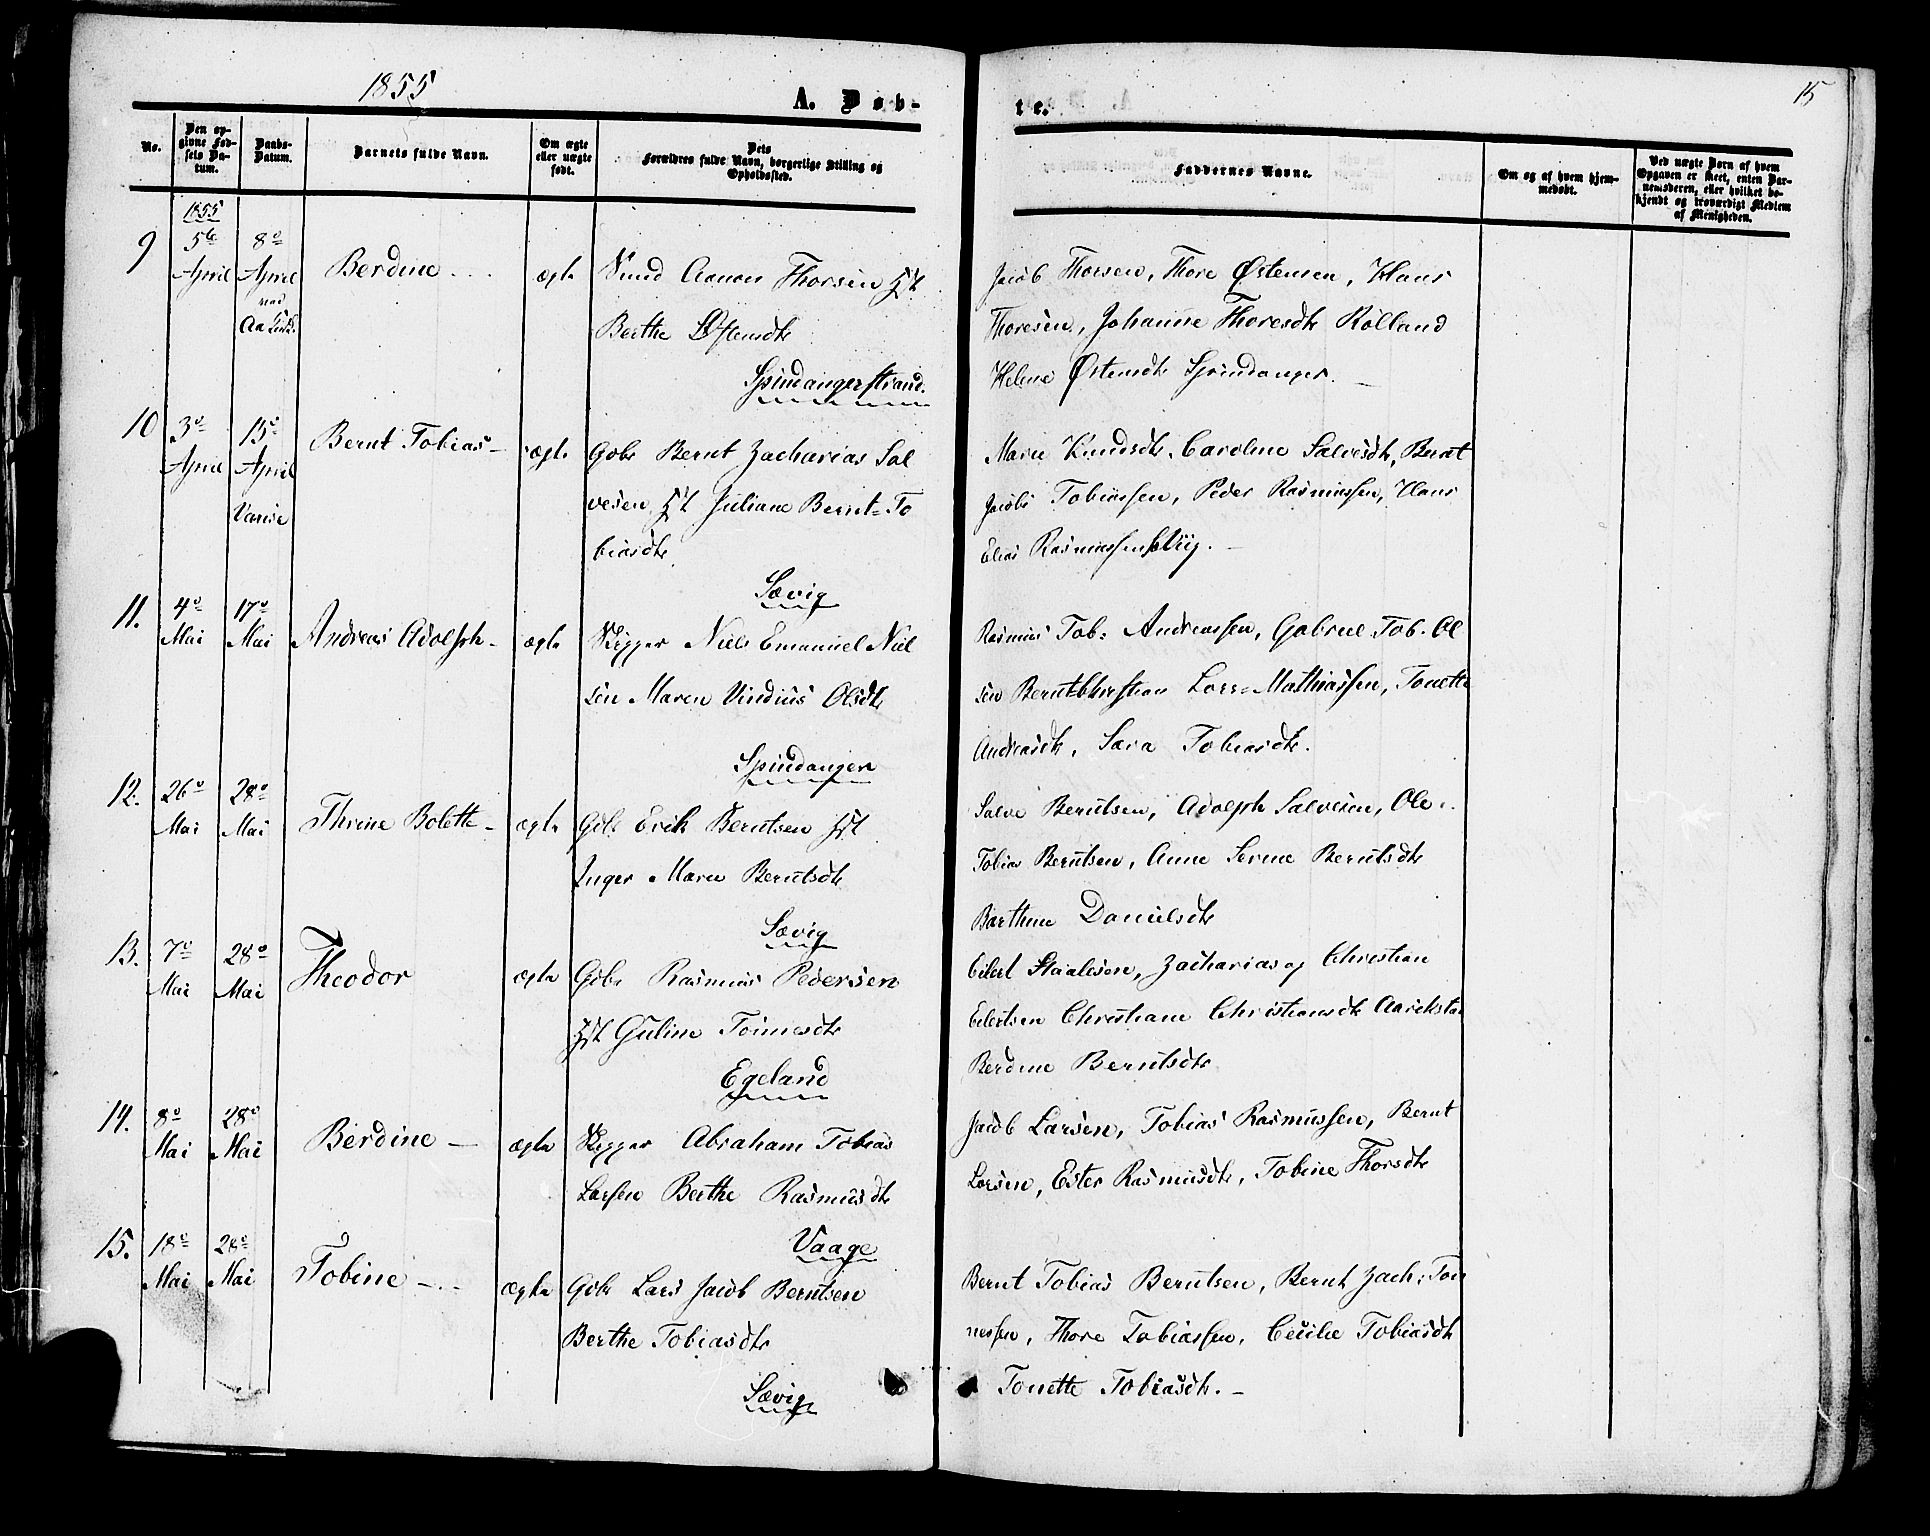 1855
A. Døb-
te.
15
No.
Den op-
givne Fød-
sels Da-
tum.
Daabs-
Datum.
Barnets fulde Navn.
Om ægte
eller uægte
født.
Dets
Forældres fulde Navn, borgerlige Stilling og
Opholdssted.
Faddernes Navne.
Om og af hvem hjem-
medøbt.
Ved uægte Børn af hvem
Opgaven er skeet, enten Bar-
nemoderen, eller hvilket be-
kjendt og troværdigt Medlem
af Menigheden.
1855
9 5te April 8o April Berdine ægte Aanen Thorsen Hst
Berthe Østensdtr
Spindangerstrand.
Jacob Thorsen, Thore Østensen, Hans
Thoresen, Johanne Thoresdtr Rølland
Helene Østensdtr Spindanger.
10 3o April 15o April Vanse Bernt Tobias ægte Gbr Bernt Zacharias Sal
vesen Hst Juliane Bernt=To
biasdtr
Sævig
Maren Knudsdtr, Caroline Salvesdtr, Bernt
Jacob Tobiassen, Peder Rasmussen, Hans
Elias Rasmussen
11. 4o Mai 17o Mai Andreas Adolph ægte Skipper Niels Emanuel Niel
sen Maren Vindius Olsdtr
Spindanger
Rasmus Tob: Andreassen, Gabriel Tob. Ol
sen Bernt Christian Lars=Mathiassen, Tonette
Andreasdtr, Sara Tobiasdtr.
12. 26o Mai 28o Mai Thrine Bolette ægte Gbr Erik Berntsen Hst
Inger Maren Berntsdtr
Sævig
Salve Berntsen, Adolph Salvesen, Ole
Tobias Berntsen, Anne Serine Berntsdtr
Barthine Danielsdtr
13. 7o Mai 28o Mai Theodor ægte Gbr Rasmus Pedersen
Hst Guline Tønnesdtr
Egeland
Eilert Staalesen, Zacharias og Christian
Eilertsen Christiane Christiansdtr Aarikstad
Berdine Berntsdtr
14. 8o Mai 28o Mai Berdine ægte Skipper Abraham Tobias
Larsen Berthe Rasmusdtr
Vaage
Jacob Larsen, Tobias Rasmussen, Bernt
Larsen, Ester Rasmusdtr, Tobine Thorsdtr
15. 18o Mai 28o Mai Tobine ægte Gbr Lars Jacob Berntsen
Berthe Tobiasdtr
Sævig
Bernt Tobias Berntsen, Bernt Zach: Tøn
nessen, Thore Tobiassen, Cecilie Tobiasdtr
Tonette Tobiasdtr.